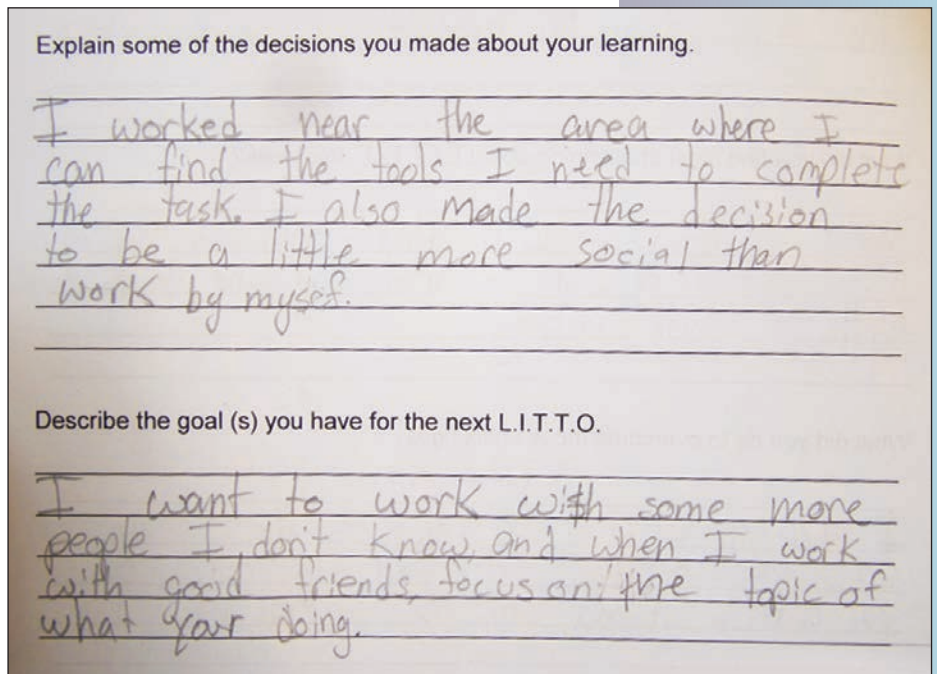 Explain some of the decisions you made about your learning.
I worked near the area where I
can find the tools I need to complete
the task. I also made the decision
to be a little more social than
work by mysef.
Describe the goal (s) you have for the next L.I.T.T.O.
I want to work with some more
people I don't know, and when I work
with good friends, focus on the topic of
what your doing.